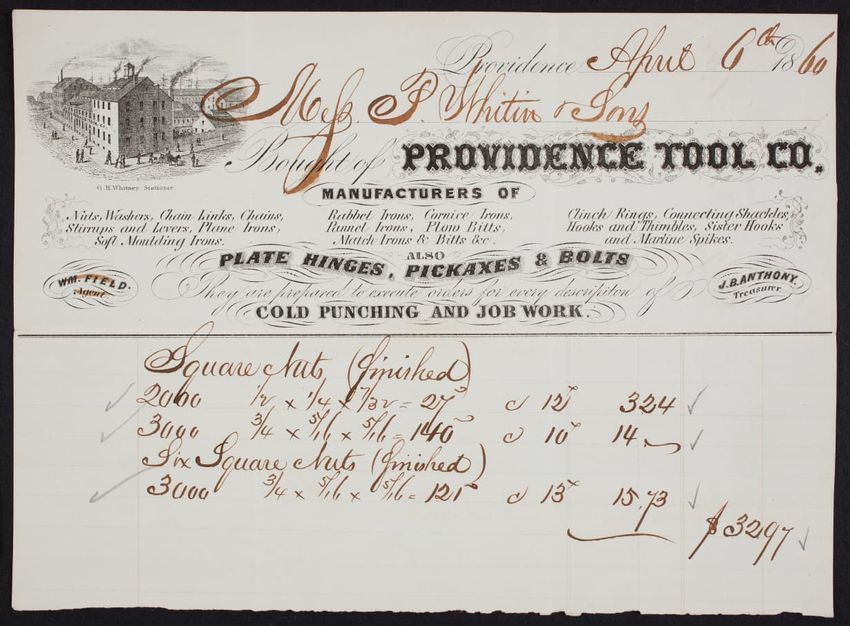 Providence April 6th 1860
Mess. P. Whitin & Sons
G.H. Whitney Stationer.
Bought of PROVIDENCE TOOL CO.
MANUFACTURERS OF
Nuts, Washers, Chain Links, Chains,
Stirrups and Levers, Plane Irons,
Soft Moulding Irons.
Rabbet Irons, Cornice Irons,
Pannel Irons, Plow Bitts,
Match Irons & Bitts &c.
Clinch Rings, Connecting Shackles,
Hooks and Thimbles, Sister Hooks
and Marline Spikes.
ALSO
PLATE HINGES, PICKAXES & BOLTS
WM. FIELD.
Agent.
J.B. ANTHONY.
Treasurer.
They are prepared to execute orders for every descripiton of
COLD PUNCHING AND JOB WORK.
Square Nuts (finished)
2000 1/2 x 1/4 x 7/32 = 27 12 324
3000 3/4 x 5/16 x 5/16 = 140 10 14
Six Square Nuts (finished)
3000 3/4 x 5/16 x 5/16 = 121 13 15.73
$3297